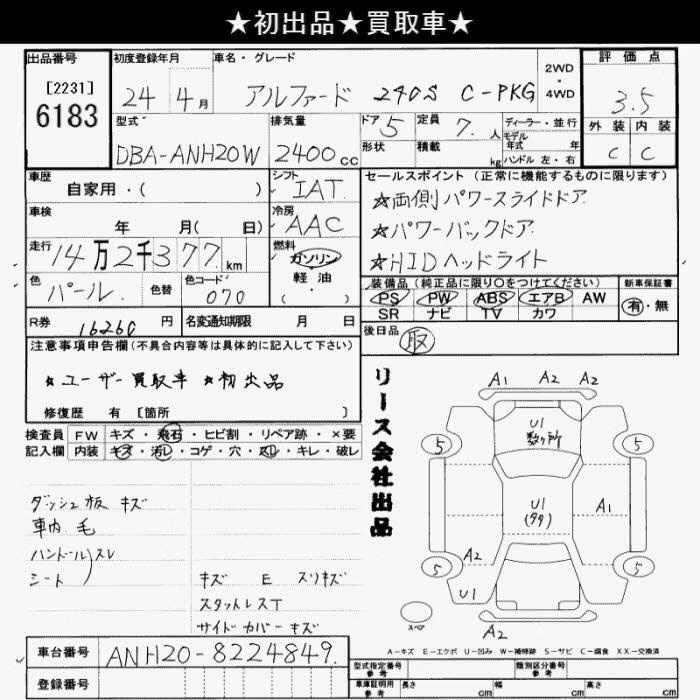 ★初出品★買取車★
出品番号 初度登録年月 車名・グレード 2WD・4WD 評価点
[2231] 6183 24年 4月 アルファード 240S C-PKG 3.5
型式 排気量 ドア 定員 ディーラー・並行 外装 内装
DBA-ANH20W 2400cc 5 7.人 モデル年式 年 C C
形状 積載 kg ハンドル 左・右
車歴 シフト セールスポイント (正常に機能するものに限ります)
自家用・( ) IAT ☆両側パワースライドドア
車検 冷房 ☆パワーバックドア
年 月( 日) AAC ☆HIDヘッドライト
走行 燃料
14万2千377km ガソリン・軽油
色 色替 色コード 装備品 (純正品に限り○をつけてください) 新車保証書
パール. 070 PS PW ABS エアB AW 有・無
SR ナビ TV カワ
R券 16260円 名変通知期限 月 日 後日品 取
注意事項申告欄(不具合内容等は具体的に記入して下さい)
★ユーザー買取車 ★初出品
修復歴 有 [箇所 ]
検査員 FW キズ・飛石・ヒビ割・リペア跡・×要
記入欄 内装 キズ・汚レ・コゲ・穴・スレ・キレ・破レ
リース会社出品
ダッシュ板 キズ
車内 毛
ハンドル)スレ
シート
キズ E スリキズ
スタットレスT
サイドカバーキズ
A1 A2 A2
U1
数ヶ所
5 5
U1
(タタ)
A1
A2
5 5
U1
スペア
A2
A-キズ E-エクボ U-凹み W-補修跡 S-サビ C-腐食 XX-交換済
車台番号 ANH20-8224849.
登録番号
型式指定番号 参考 類別区分番号 参考
車庫証明用 参考 長さ cm 幅 cm 高さ cm